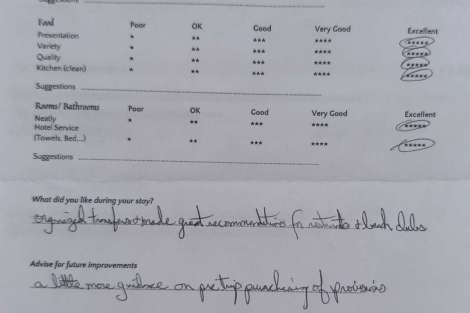 Suggestions
Food Poor OK Good Very Good Excellent
Presentation * ** *** **** *****
Variety * ** *** **** *****
Quality * ** *** **** *****
Kitchen (clean) * ** *** **** *****
Suggestions
Rooms/ Bathrooms Poor OK Good Very Good Excellent
Neatly * ** *** **** *****
Hotel Service
(Towels, Bed...) * ** *** **** *****
Suggestions
What did you like during your stay?
organized transfers + made great recommendations for + beach clubs
Advise for future improvements
a little more guidance on pre trip purchasing of provisions